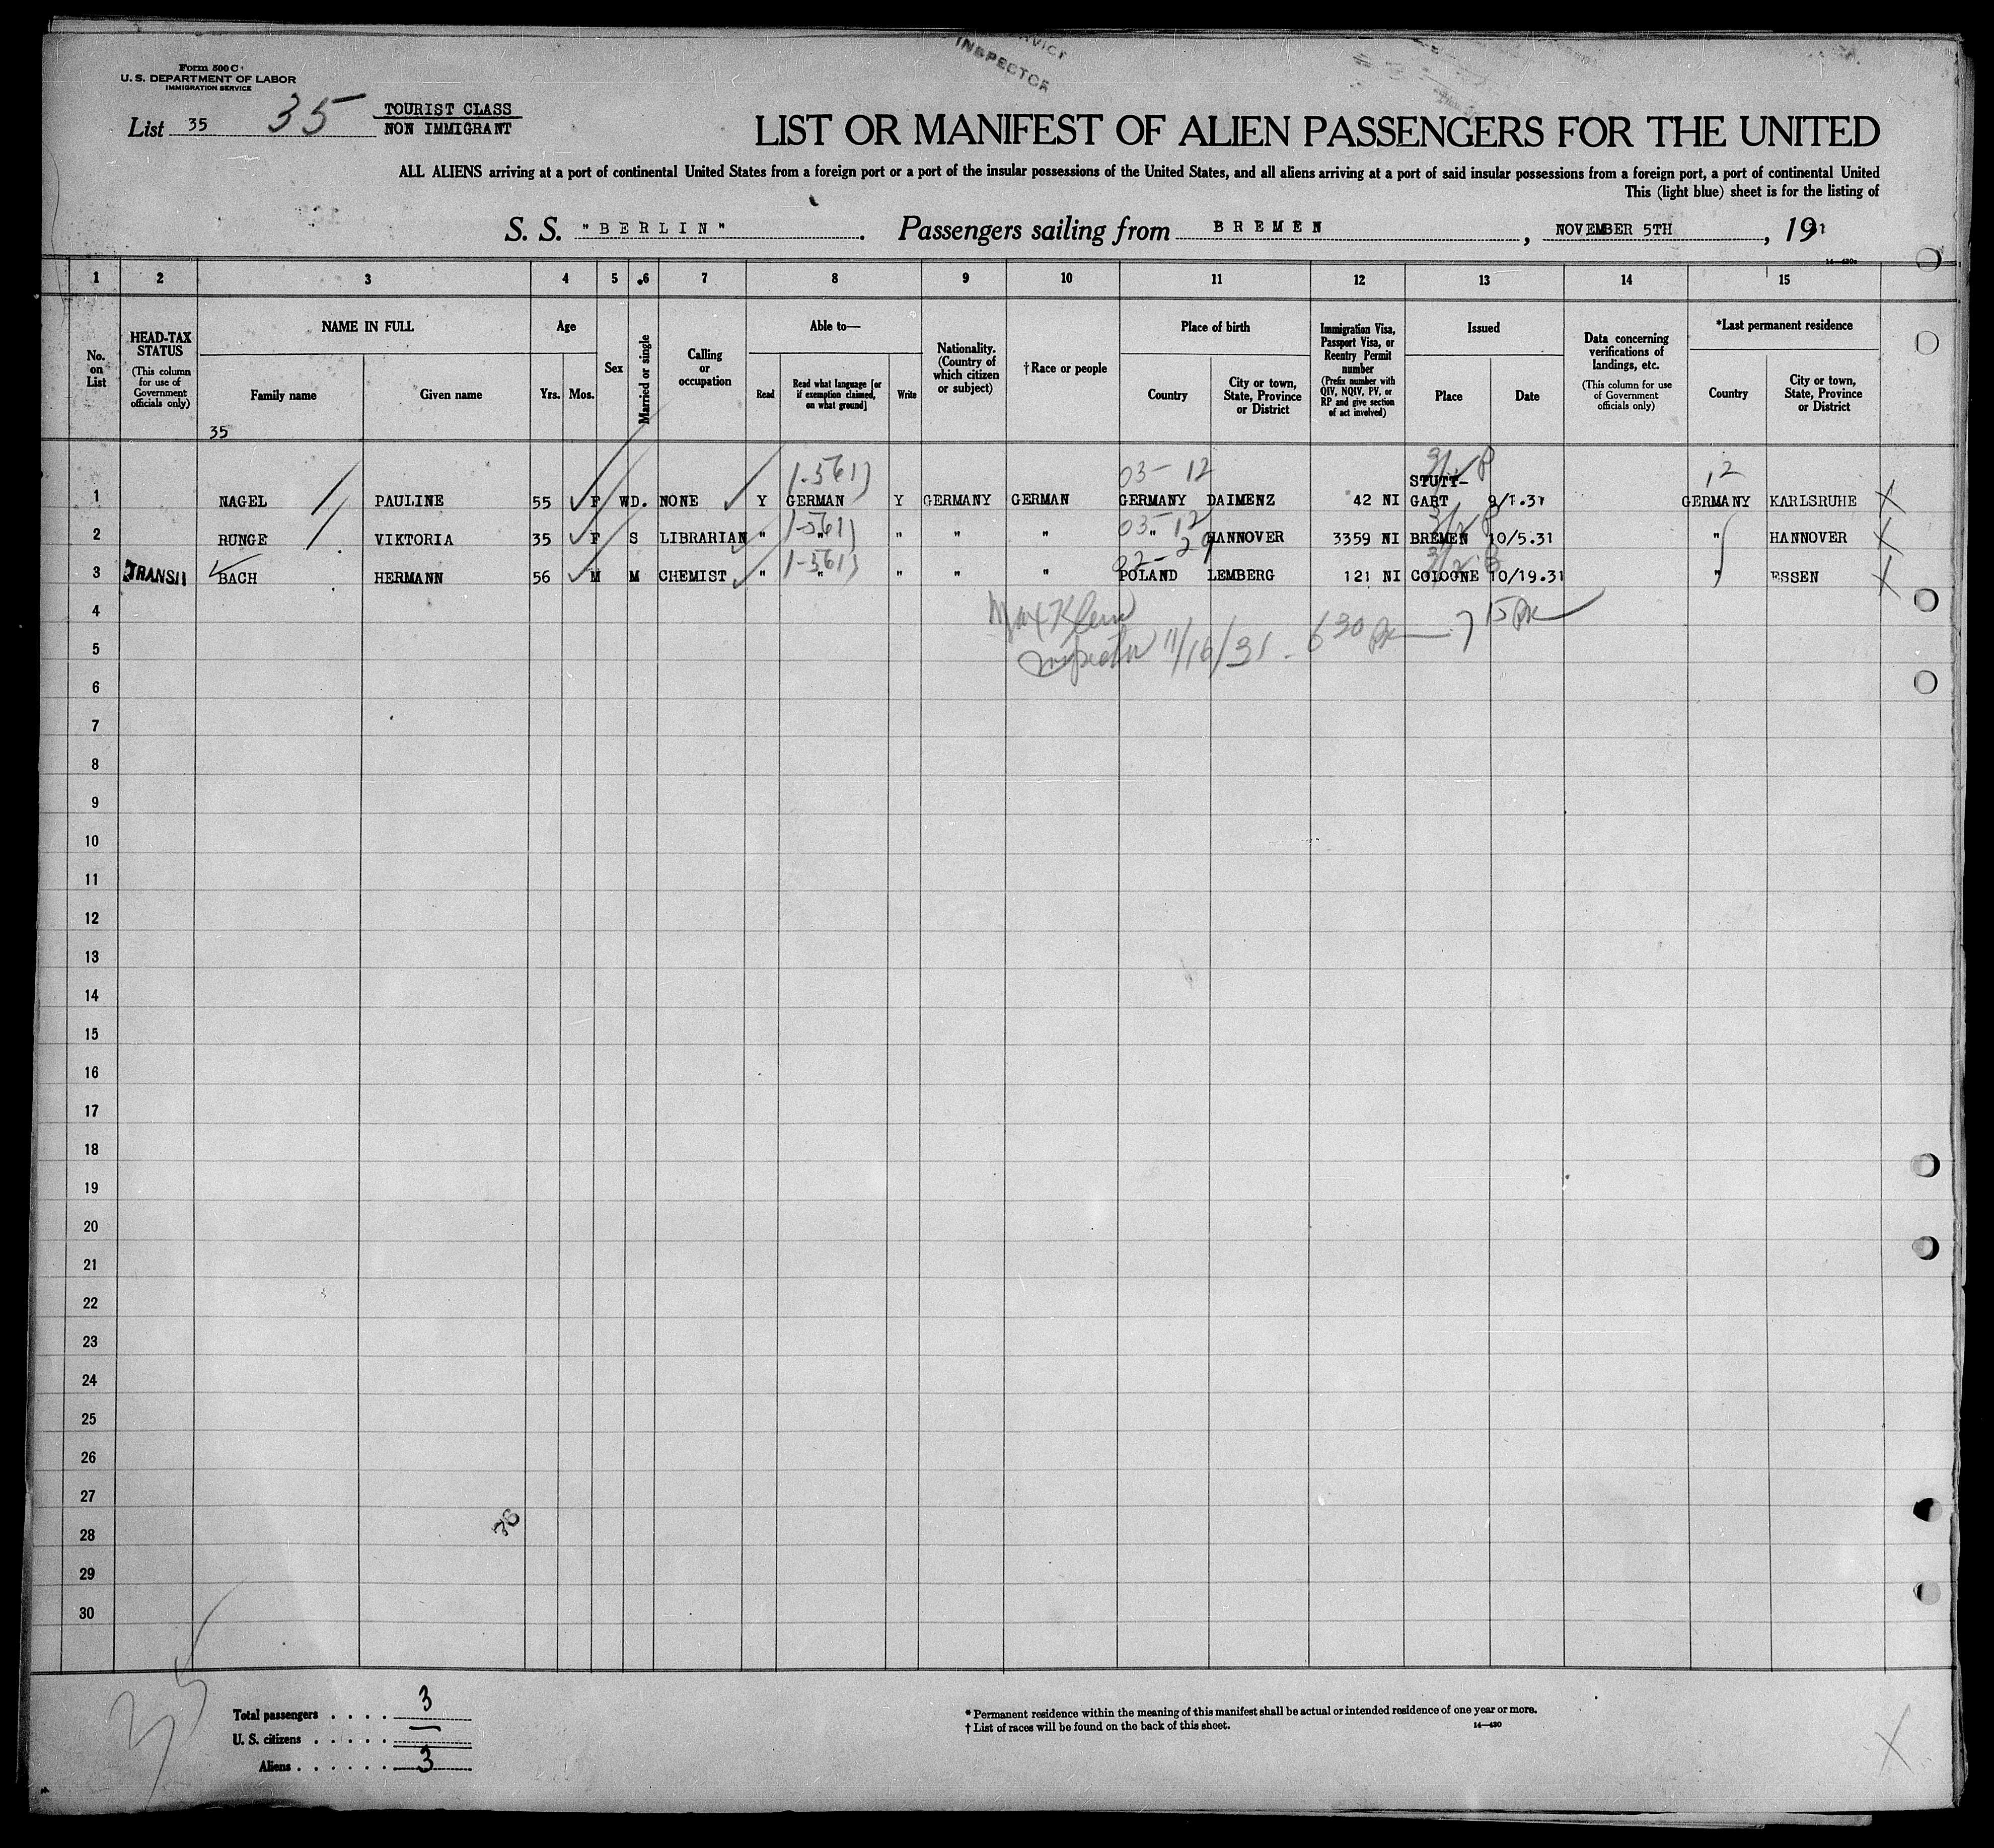 INSPECTOR
Form 500 C
U. S. DEPARTMENT OF LABOR
IMMIGRATION SERVICE
List 35 35 TOURIST CLASS
NON IMMIGRANT
LIST OR MANIFEST OF ALIEN PASSENGERS FOR THE UNITED
ALL ALIENS arriving at a port of continental United States from a foreign port or a port of the insular possessions of the United States, and all aliens arriving at a port of said insular possessions from a foreign port, a port of continental United
This (light blue) sheet is for the listing of
S. S. "BERLIN". Passengers sailing from BREMEN, NOVEMBER 5TH, 1931
1 2 3 4 5 6 7 8 9 10 11 12 13 14 15
No. on List
HEAD-TAX STATUS
(This column for use of Government officials only)
NAME IN FULL
Family name Given name
35
Age
Yrs. Mos.
Sex
Married or single
Calling or occupation
Able to—
Read Read what language [or if exemption claimed, on what ground] Write
Nationality. (Country of which citizen or subject)
†Race or people
Place of birth
Country City or town, State, Province or District
Immigration Visa, Passport Visa, or Reentry Permit number
(Prefix number with QIV, NQIV, PV, or RP and give section of act involved)
Issued
Place Date
Data concerning verifications of landings, etc.
(This column for use of Government officials only)
*Last permanent residence
Country City or town, State, Province or District
03- 12 12
1 NAGEL PAULINE 55 F WD. NONE Y GERMAN Y GERMANY GERMAN GERMANY DAIMENZ 42 NI STUTT-GART 9/1.31 GERMANY KARLSRUHE X
03-12
2 RUNGE VIKTORIA 35 F S LIBRARIAN " " " " " " HANNOVER 3359 NI BREMEN 10/5.31 " HANNOVER X
3 TRANSIT BACH HERMANN 56 M M CHEMIST " " " " " POLAND LEMBERG 121 NI COLOGNE 10/19.31 " ESSEN X
4 Max Klein
5 Inspector 11/16/31 - 6 30 PM — 7 15 PM
6
7
8
9
10
11
12
13
14
15
16
17
18
19
20
21
22
23
24
25
26
27
28
29
30
35
Total passengers . . . . 3
U. S. citizens . . . . . —
Aliens . . . . . . 3
* Permanent residence within the meaning of this manifest shall be actual or intended residence of one year or more.
† List of races will be found on the back of this sheet. 14—430
X